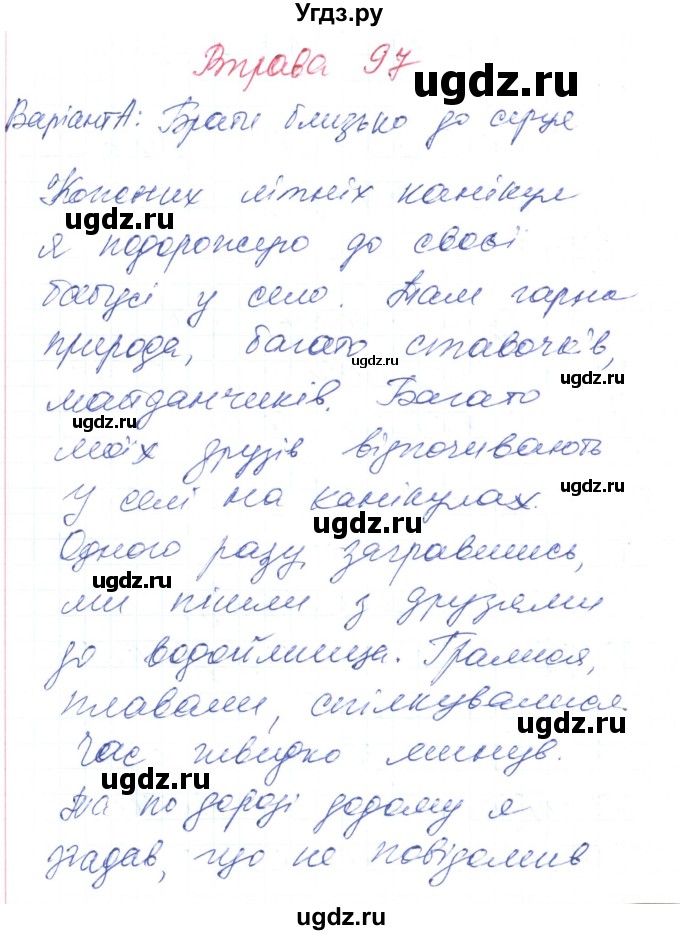 Угдз.ру
Вправа 97
ВаріантА: Брати близько до серця
Кожних літніх канікул
я подорожую до своєї
бабусі у село. Там гарна
природа, багато ставочків,
майданчиків. Багато
моїх друзів відпочивають
у селі на канікулах.
Одного разу, загравшись,
ми пішли з друзями
до водоймища. Грались,
плавали, спілкувалися.
Час швидко минув.
Та по дорозі додому я
згадав, що не повідомив
ugdz.ru
ugdz.ru
ugdz.ru
ugdz.ru
ugdz.ru
ugdz.ru
ugdz.ru
ugdz.ru
ugdz.ru
ugdz.ru
ugdz.ru
ugdz.ru
ugdz.ru